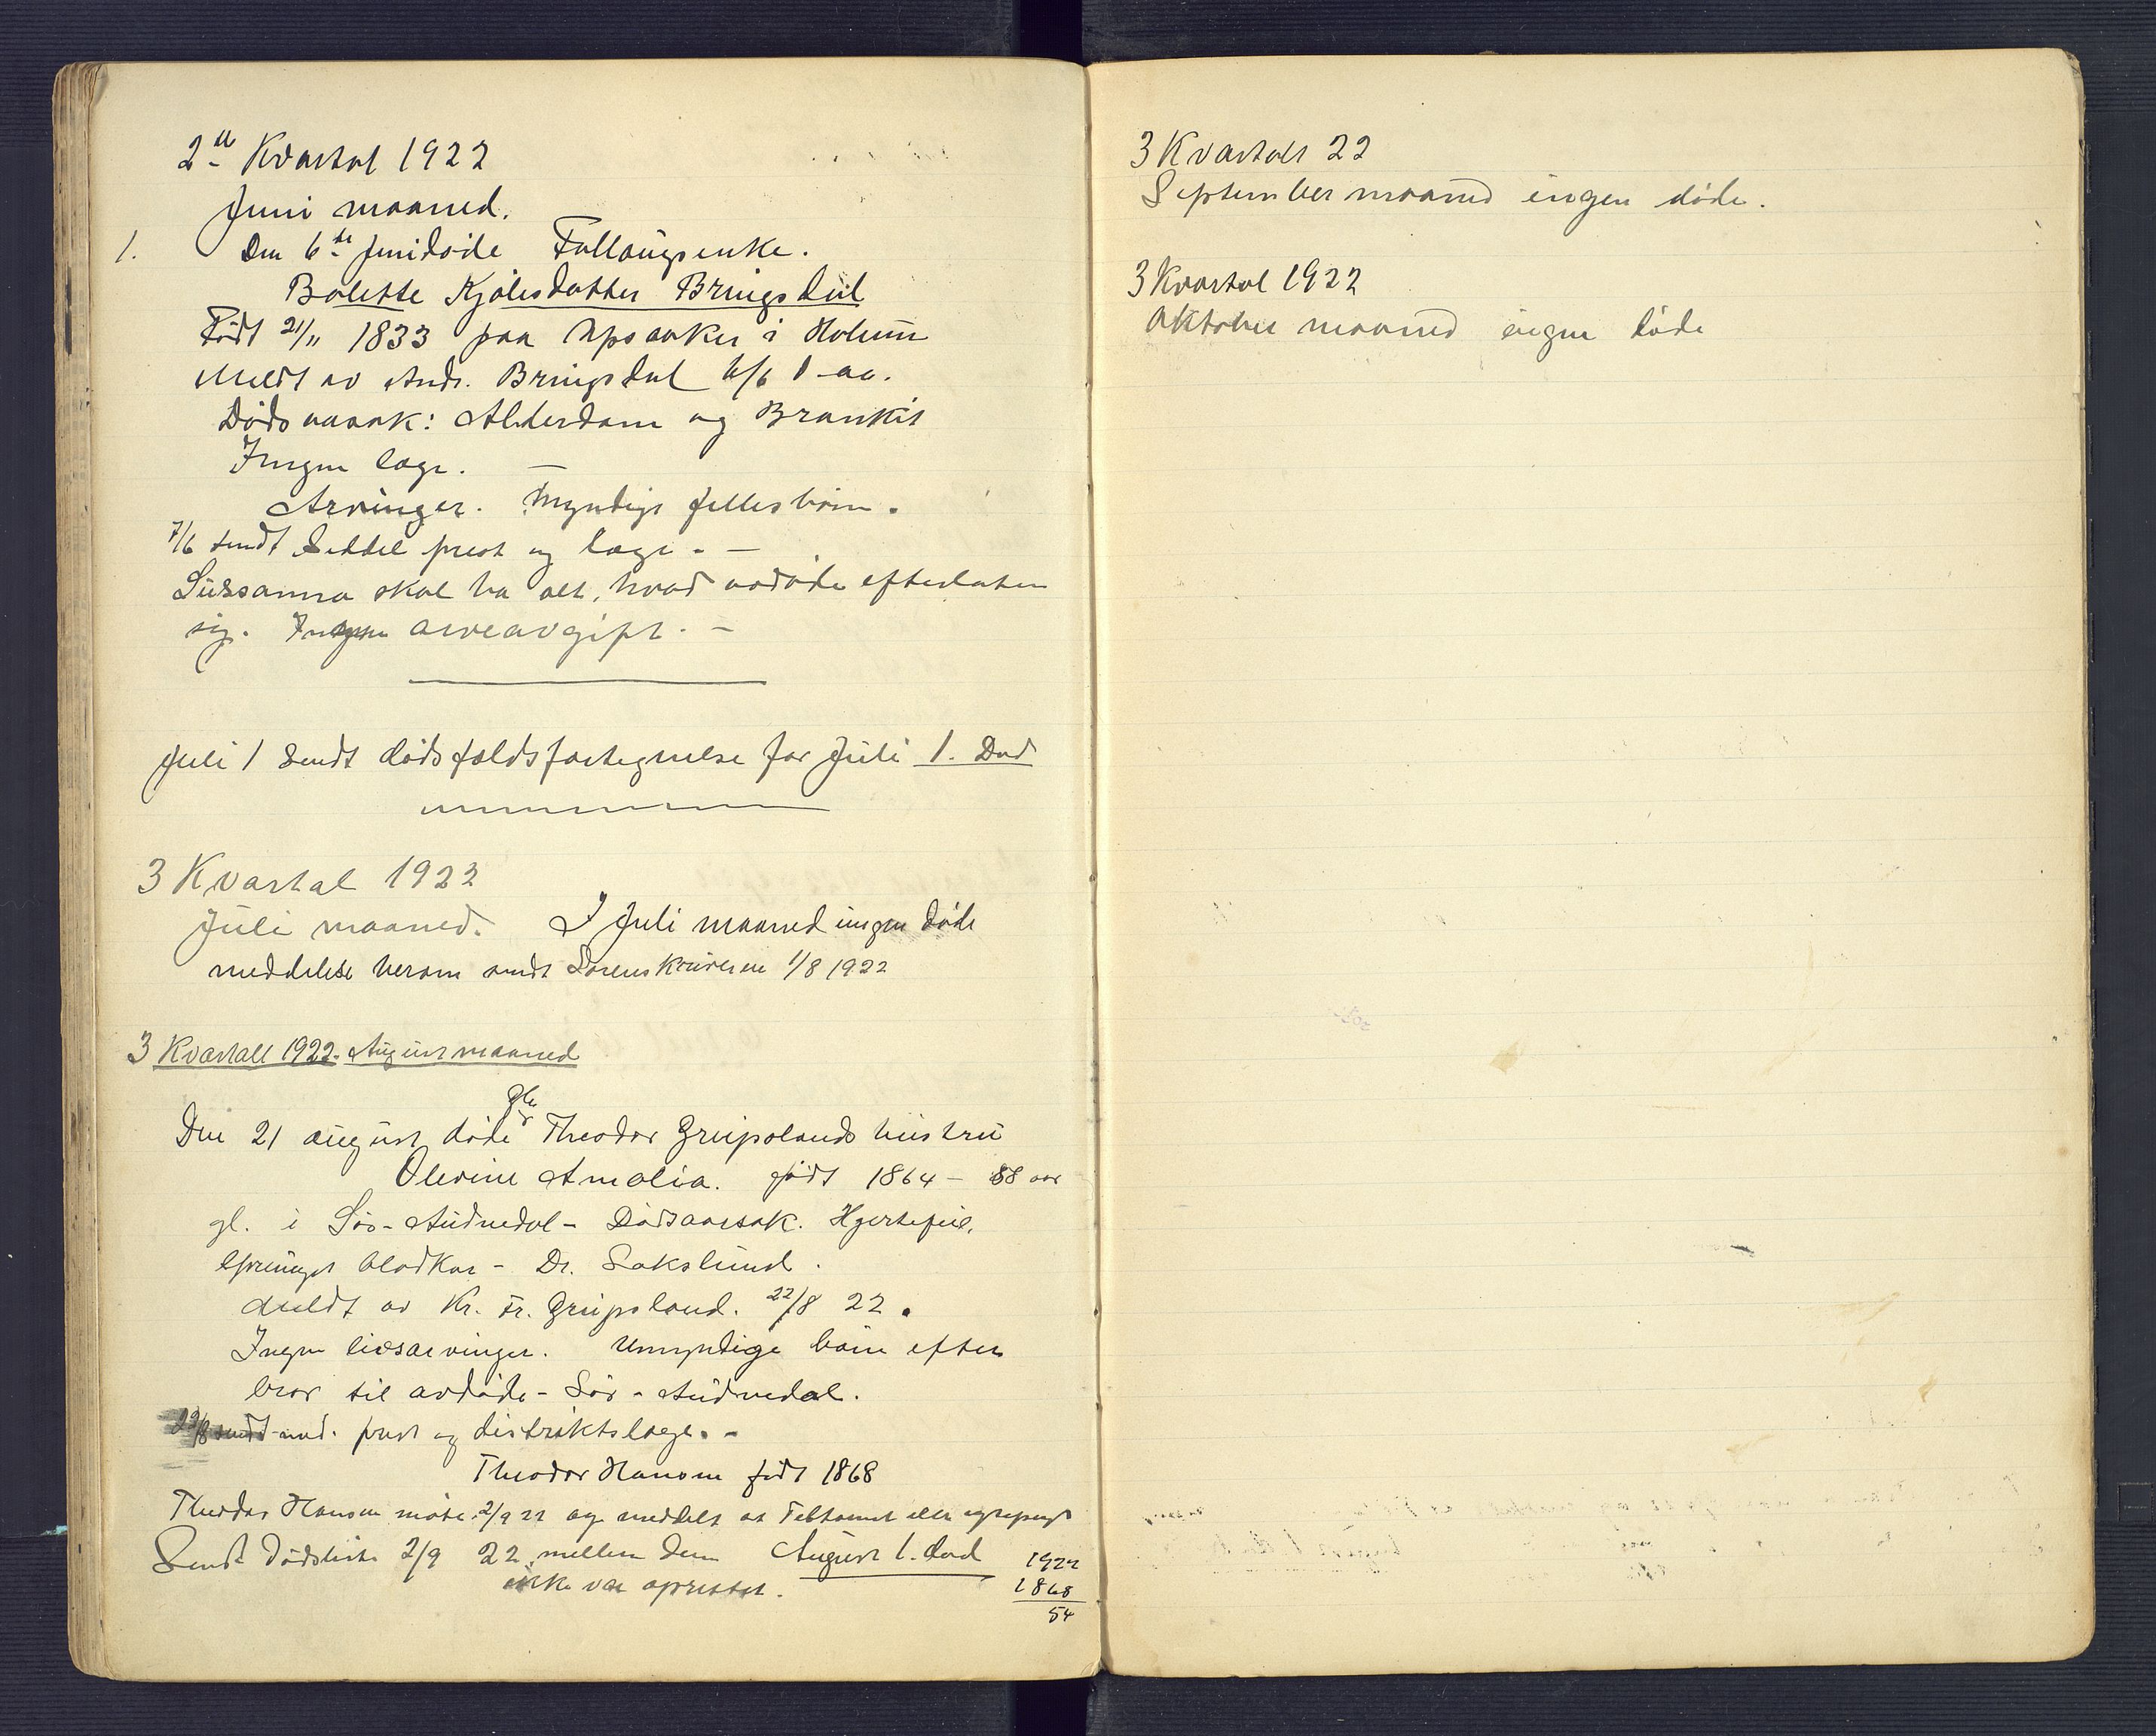 2det Kvartal 1922
Juni maaned.
1. Den 6te Juni døde Føllaugsenke.
Bolette Kjølesdatter Bringsdal
Født 21/11 1833 paa Upsaaker i Holum
Meldt av Andr. Bringsdal 6/6 d-aa.
Dødsaarsak: Alderdom og Bronkit
Ingen læge. —
Arvinger. Myndige fellesbørn.
7/6 sendt Seddel prest og læge. —
Sussanna skal ha alt, hvad avdøde efterlater
sig. Ingen arveavgift. —
Juli 1 Sendt dødsfaldsfortegnelse for Juli 1. Død
3 Kvartal 1922
Juli maaned. I Juli maaned ingen døde
meddelelse herom sendt Sorenskriveren 1/8 1922
3 Kvartall 1922. August maaned
Den 21 august døde gbr Theodor Gruipslands hustru
Olevine Amalia. født 1864 — 58 aar
gl. i Sør-Audnedal - Dødsaarsak. Hjertefeil,
sprunget blodkar - Dr. Sakslund.
Meldt av Kr. Fr. Gruipsland. 22/8 22.
Ingen livsarvinger. Umyndige børn efter
bror til avdøde - Sør-Audnedal.
23/8 sendt med. prest og distriktslæge. -
Theodor Hansen født 1868
Theodor Hansen møtte 2/9 22 og meddelt at Testament eller egtepagt
Sendt Dødsliste 2/9 22. mellem dem August 1. død 1922
ikke var oprettet. 1868
54
3 Kvartals 22
September maaned ingen døde.
3 Kvartal 1922
Oktober maaned ingen døde